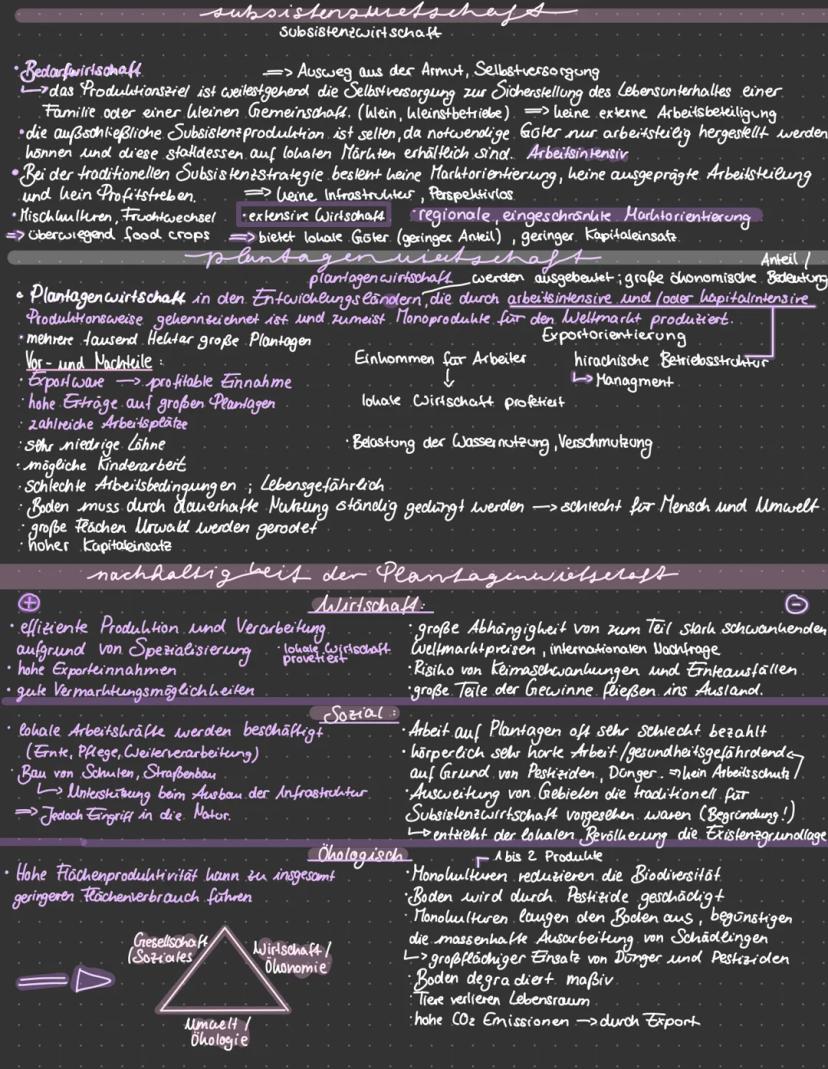 subsistenzwirtschaft
Subsistenzwirtschaft
• Bedarfwirtschaft => Ausweg aus der Armut, Selbstversorgung
↳ das Produktionsziel ist weitestgehend die Selbstversorgung zur Sicherstellung des Lebensunterhaltes einer
Familie oder einer kleinen Gemeinschaft. (klein, kleinstbetriebe) => keine externe Arbeitsbeteiligung
• die außschließliche Subsistenzproduktion ist selten, da notwendige Güter nur arbeitsteilig hergestellt werden
können und diese stattdessen auf lokalen Märkten erhältlich sind. Arbeitsintensiv
• Bei der traditionellen Subsistenzstrategie besteht keine Marktorientierung, keine ausgeprägte Arbeitsteilung
und kein Profitstreben. => keine Infrastruktur, Perspektivlos
• Mischkulturen, Fruchtwechsel • extensive Wirtschaft • regionale, eingeschränkte Marktorientierung
=> überwiegend food crops => bietet lokale Güter (geringer Anteil), geringer Kapitaleinsatz
plantagenwirtschaft
Anteil /
plantagenwirtschaft werden ausgebeutet; große ökonomische Bedeutung
• Plantagenwirtschaft in den Entwicklungsländern, die durch arbeitsintensive und/oder kapitalintensive
Produktionsweise gekennzeichnet ist und zumeist Monoprodukte für den Weltmarkt produziert.
• mehrere tausend Hektar große Plantagen Exportorientierung
Vor- und Nachteile: Einkommen für Arbeiter hirachische Betriebsstruktur
• Exportware → profitable Einnahme ↓ ↳ Managment
• hohe Erträge auf großen Plantagen lokale Wirtschaft profetiert
• zahlreiche Arbeitsplätze
• sehr niedrige Löhne • Belastung der Wassernutzung, Verschmutzung
• mögliche Kinderarbeit
• schlechte Arbeitsbedingungen ; Lebensgefährlich
• Boden muss durch dauerhafte Nutzung ständig gedüngt werden → schlecht für Mensch und Umwelt
• große Flächen Urwald werden gerodet
• hoher Kapitaleinsatz
nachhaltigkeit der Plantagenwirtschaft
+ Wirtschaft: -
• effiziente Produktion und Verarbeitung
aufgrund von Spezialisierung • lokale Wirtschaft
provetiert
• hohe Exporteinnahmen
• gute Vermarktungsmöglichkeiten
• große Abhängigkeit von zum Teil stark schwankenden
Weltmarktpreisen, internationalen Nachfrage
• Risiko von Keimaschwankungen und Ernteausfällen
• große Teile der Gewinne fließen ins Ausland.
Sozial:
• lokale Arbeitskräfte werden beschäftigt
(Ernte, Pflege, Weiterverarbeitung)
• Bau von Schulen, Straßenbau
↳ Unterstützung beim Ausbau der Infrastruktur
=> Jedoch Eingriff in die Natur.
• Arbeit auf Plantagen oft sehr schlecht bezahlt
• körperlich sehr harte Arbeit /gesundheitsgefährdend
auf Grund von Pestiziden, Dünger. => kein Arbeitsschutz
• Ausweitung von Gebieten die traditionell für
Subsistenzwirtschaft vorgesehen waren (Begründung!)
↳ entzieht der lokalen Bevölkerung die Existenzgrundlage
Ökologisch
• Hohe Flächenproduktivität kann zu insgesamt
geringeren Flächenverbrauch führen
1 bis 2 Produkte
• Monokulturen reduzieren die Biodiversität
• Boden wird durch Pestizide geschädigt
• Monokulturen laugen den Boden aus, begünstigen
die massenhafte Ausarbeitung von Schädlingen
↳ großflächiger Einsatz von Dünger und Pestiziden
• Boden degradiert maßiv
• Tiere verlieren Lebensraum
• hohe CO2 Emissionen → durch Export
Gesellschaft
/Soziales
Wirtschaft /
Ökonomie
Umwelt /
Ökologie